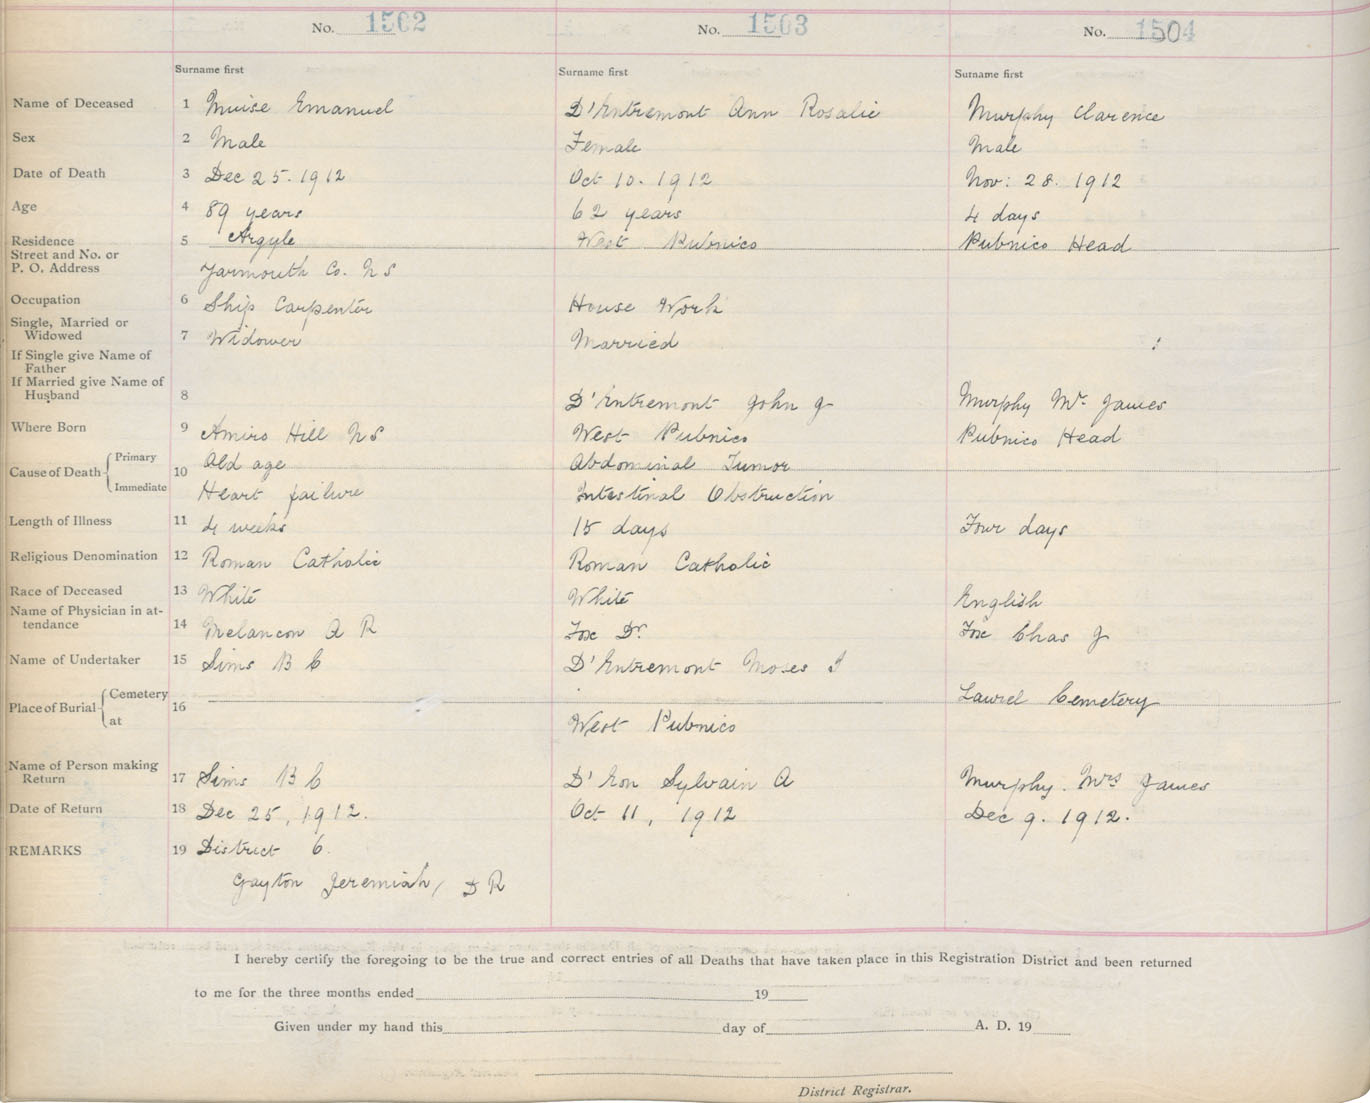 No. 1502 No. 1503 No. 1504
Surname first Surname first Surname first
Name of Deceased 1 Muise Emanuel D'Entremont Ann Rosalie Murphy Clarence
Sex 2 Male Female Male
Date of Death 3 Dec 25. 1912 Oct 10. 1912 Nov: 28. 1912
Age 4 89 years 62 years 4 days
Residence 5 Argyle West Pubnico Pubnico Head
Street and No. or
P. O. Address Yarmouth Co. N S
Occupation 6 Ship Carpenter House Work
Single, Married or
Widowed 7 Widower Married
If Single give Name of
Father
If Married give Name of
Husband 8 D'Entremont John J Murphy Mr James
Where Born 9 Amiro Hill N S West Pubnico Pubnico Head
Cause of Death 10 Primary Old age Abdominal Tumor
Immediate Heart failure Intestinal Obstruction
Length of Illness 11 4 weeks 15 days Four days
Religious Denomination 12 Roman Catholic Roman Catholic
Race of Deceased 13 White White English
Name of Physician in at-
tendance 14 Melancon A R Fox Dr Fox Chas J
Name of Undertaker 15 Sims B C D'Entremont Moses I
Place of Burial 16 Cemetery Laurel Cemetery
at West Pubnico
Name of Person making
Return 17 Sims B C D'Eon Sylvain A Murphy. Mrs James
Date of Return 18 Dec 25, 1912. Oct 11, 1912 Dec 9. 1912.
REMARKS 19 District 6.
Gayton Jeremiah, D R
I hereby certify the foregoing to be the true and correct entries of all Deaths that have taken place in this Registration District and been returned
to me for the three months ended 19
Given under my hand this day of A. D. 19
District Registrar.